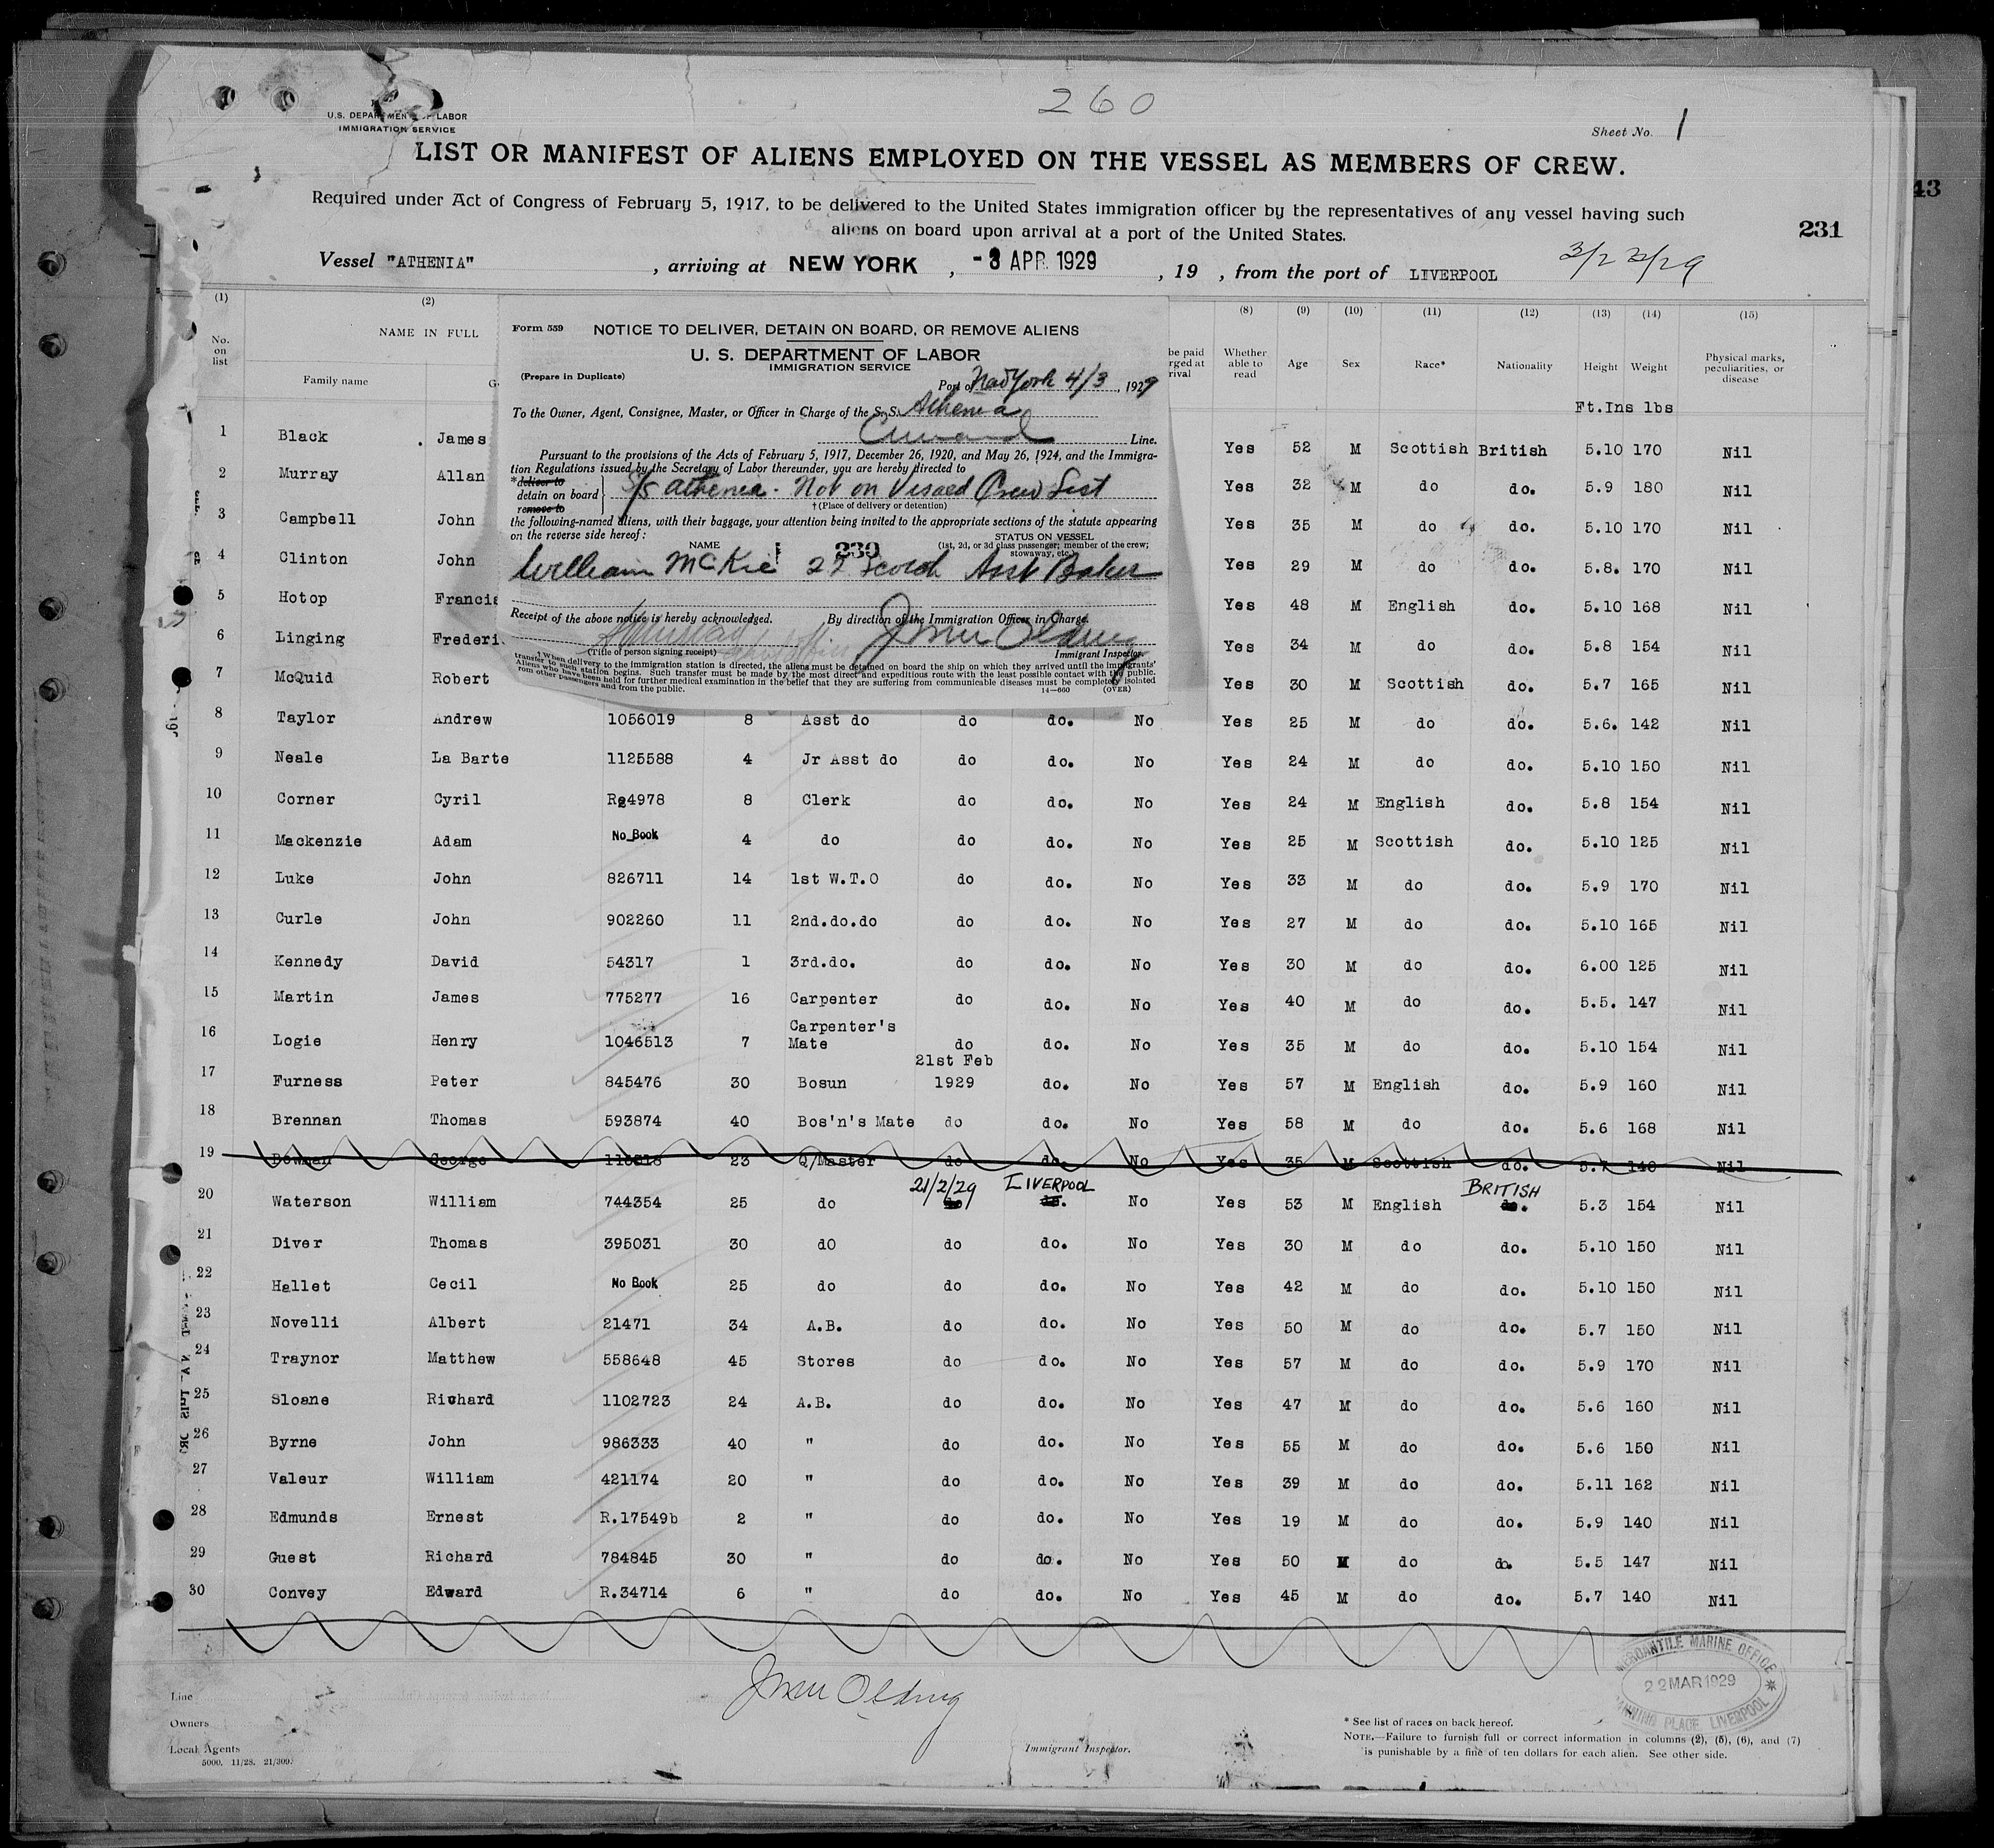 260
U.S. DEPARTMENT OF LABOR
IMMIGRATION SERVICE
Sheet No. 1
LIST OR MANIFEST OF ALIENS EMPLOYED ON THE VESSEL AS MEMBERS OF CREW.
43
Required under Act of Congress of February 5, 1917, to be delivered to the United States immigration officer by the representatives of any vessel having such
aliens on board upon arrival at a port of the United States.
231
Vessel "ATHENIA" , arriving at NEW YORK , -3 APR 1929 , 19 , from the port of LIVERPOOL
(1) (2) (8) (9) (10) (11) (12) (13) (14) (15)
No. on list NAME IN FULL be paid Whether able to read Age Sex Race* Nationality Height Weight Physical marks, peculiarities, or disease
Family name
Ft.Ins lbs
Form 559 NOTICE TO DELIVER, DETAIN ON BOARD, OR REMOVE ALIENS
U. S. DEPARTMENT OF LABOR
IMMIGRATION SERVICE
(Prepare in Duplicate) Port of New York 4/3, 1929
To the Owner, Agent, Consignee, Master, or Officer in Charge of the S. S. Athenia
Cunard Line.
Pursuant to the provisions of the Acts of February 5, 1917, December 26, 1920, and May 26, 1924, and the Immigra-
tion Regulations issued by the Secretary of Labor thereunder, you are hereby directed to
*deliver to
detain on board S/S Athenia - Not on Visaed Crew List
remove to †(Place of delivery or detention)
the following-named aliens, with their baggage, your attention being invited to the appropriate sections of the statute appearing
on the reverse side hereof:
NAME 230 STATUS ON VESSEL
(1st, 2d, or 3d class passenger; member of the crew;
stowaway, etc.)
William McKie 27 Scotch Asst Baker
Receipt of the above notice is hereby acknowledged. By direction of the Immigration Officer in Charge.
(Title of person signing receipt) Immigrant Inspector.
† When delivery to the immigration station is directed, the aliens must be detained on board the ship on which they arrived until the immigrants'
transfer to such station begins. Such transfer must be made by the most direct and expeditious route with the least possible contact with the public.
Aliens who have been held for further medical examination in the belief that they are suffering from communicable diseases must be completely isolated
from other passengers and from the public. 14-660 (OVER)
1 Black James Yes 52 M Scottish British 5.10 170 Nil
2 Murray Allan Yes 32 M do do. 5.9 180 Nil
3 Campbell John Yes 35 M do do. 5.10 170 Nil
4 Clinton John Yes 29 M do do. 5.8. 170 Nil
5 Hotop Francis Yes 48 M English do. 5.10 168 Nil
6 Linging Frederi Yes 34 M do do. 5.8 154 Nil
7 McQuid Robert Yes 30 M Scottish do. 5.7 165 Nil
8 Taylor Andrew 1056019 8 Asst do do do. No Yes 25 M do do. 5.6. 142 Nil
9 Neale La Barte 1125588 4 Jr Asst do do do. No Yes 24 M do do. 5.10 150 Nil
10 Corner Cyril 8 Clerk do do. No Yes 24 M English do. 5.8 154 Nil
11 Mackenzie Adam No Book 4 do do do. No Yes 25 M Scottish do. 5.10 125 Nil
12 Luke John 826711 14 1st W.T.O do do. No Yes 33 M do do. 5.9 170 Nil
13 Curle John 902260 11 2nd.do.do do do. No Yes 27 M do do. 5.10 165 Nil
14 Kennedy David 54317 1 3rd.do. do do. No Yes 30 M do do. 6.00 125 Nil
15 Martin James 775277 16 Carpenter do do. No Yes 40 M do do. 5.5. 147 Nil
16 Logie Henry 1046513 7 Carpenter's Mate do do. No Yes 35 M do do. 5.10 154 Nil
17 Furness Peter 845476 30 Bosun 21st Feb 1929 do. No Yes 57 M English do. 5.9 160 Nil
18 Brennan Thomas 593874 40 Bos'n's Mate do do. No Yes 58 M do do. 5.6 168 Nil
19 Bowman George 23 Q/Master do do. No Yes 35 M Scottish do. 5.7 140 Nil
21/2/29 LIVERPOOL BRITISH
20 Waterson William 744354 25 do do do. No Yes 53 M English do. 5.3 154 Nil
21 Diver Thomas 395031 30 dO do do. No Yes 30 M do do. 5.10 150 Nil
22 Hallet Cecil No Book 25 do do do. No Yes 42 M do do. 5.10 150 Nil
23 Novelli Albert 21471 34 A.B. do do. No Yes 50 M do do. 5.7 150 Nil
24 Traynor Matthew 558648 45 Stores do do. No Yes 57 M do do. 5.9 170 Nil
25 Sloane Richard 1102723 24 A.B. do do. No Yes 47 M do do. 5.6 160 Nil
26 Byrne John 986333 40 " do do. No Yes 55 M do do. 5.6 150 Nil
27 Valeur William 421174 20 " do do. No Yes 39 M do do. 5.11 162 Nil
28 Edmunds Ernest R.17549b 2 " do do. No Yes 19 M do do. 5.9 140 Nil
29 Guest Richard 784845 30 " do do. No Yes 50 M do do. 5.5 147 Nil
30 Convey Edward R.34714 6 " do do. No Yes 45 M do do. 5.7 140 Nil
MERCANTILE MARINE OFFICE
22 MAR 1929
CANNING PLACE LIVERPOOL
Line
Owners
Local Agents Immigrant Inspector.
5000. 11/28. 21/309.
* See list of races on back hereof.
NOTE.—Failure to furnish full or correct information in columns (2), (5), (6), and (7)
is punishable by a fine of ten dollars for each alien. See other side.